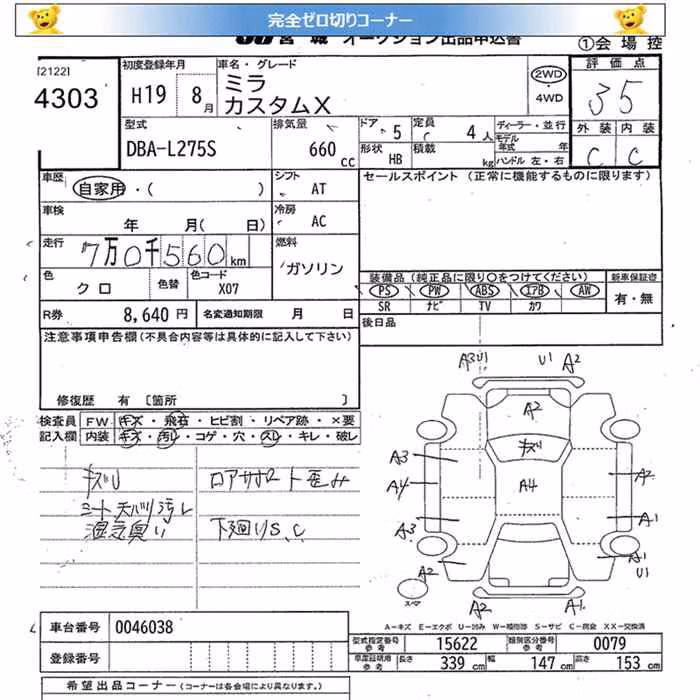 完全ゼロ切りコーナー
宮城 オークション出品申込書
①会場控
[2122]
4303
初度登録年月
H19 8月
車名・グレード
ミラ
カスタムX
2WD
・4WD
評価点
35
外装 内装
C C
型式
DBA-L275S
排気量
660 cc
ドア 5
定員 4人
形状 HB
積載 kg
ディーラー・並行
モデル年式 年
ハンドル 左・右
車歴
自家用・( )
シフト
AT
セールスポイント (正常に機能するものに限ります)
車検
年 月( 日)
冷房
AC
走行
7万0千560km
燃料
ガソリン
色
クロ
色替
色コード
X07
装備品(純正品に限り○をつけてください)
新車保証書
PS PW ABS エアB AW
SR ナビ TV カワ
有・無
R券 8,640円
名変通知期限 月 日
後日品
注意事項申告欄(不具合内容等は具体的に記入して下さい)
修復歴 有 [箇所 ]
検査員記入欄
FW キズ・飛石・ヒビ割・リペア跡・×要
内装 キズ・汚れ・コゲ・穴・スレ・キレ・破レ
キズU ロアサポート歪み
シート天バリ汚レ
湿気臭い 下廻りS、C
A3 U1 U1 A2
A2
キズU
A3
A4 A4 A2
A3 A1
A2 A1
U1
スペア
A2 A1
A-キズ E-エクボ U-凹み W-補修跡 S-サビ C-腐食 XX-交換済
車台番号 0046038
登録番号
型式指定番号 参考 15622
類別区分番号 参考 0079
車庫証明用 参考 長さ 339 cm 幅 147 cm 高さ 153 cm
希望出品コーナー(コーナーは各会場により異なります。)